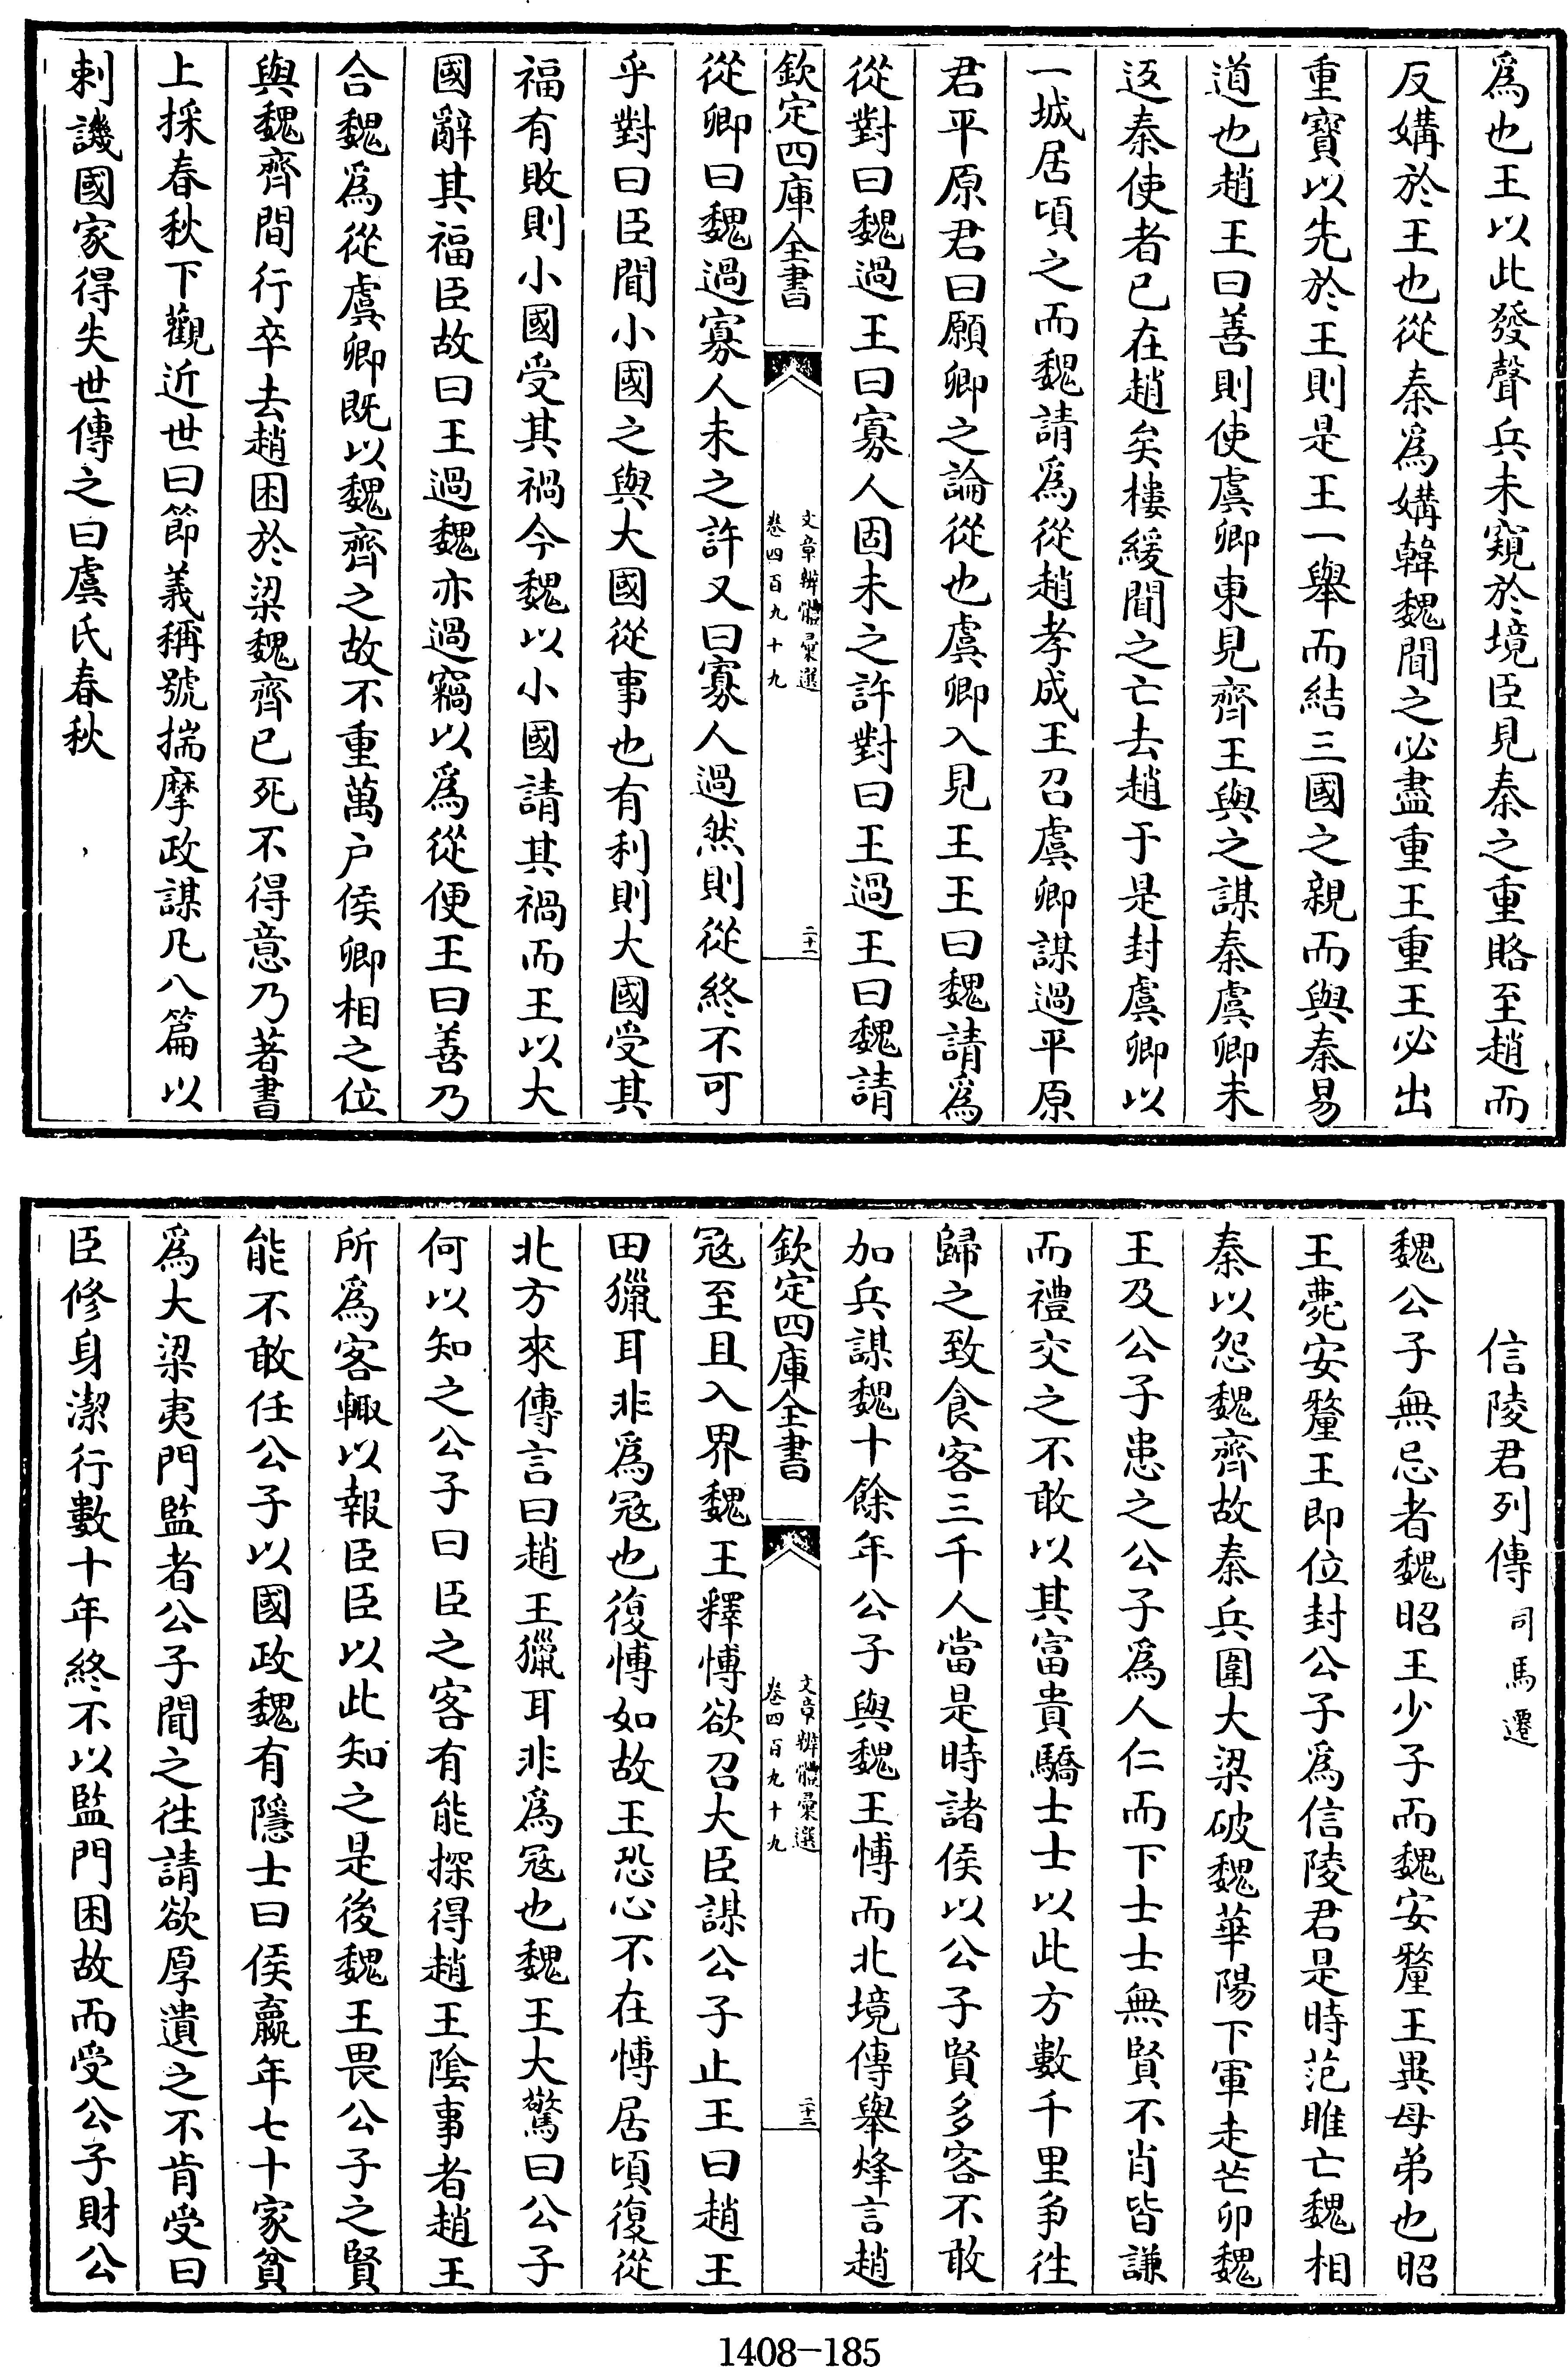 爲也王以此發聲兵未窺於境臣見秦之重賂至趙而
反媾於王也從秦爲媾韓魏聞之必盡重王重王必出
重寳以先於王則是王一舉而結三國之親而與秦易
道也趙王曰善則使虞卿東見齊王與之謀秦虞卿未
返秦使者已在趙矣樓緩聞之亡去趙于是封虞卿以
一城居頃之而魏請爲從趙孝成王召虞卿謀過平原
君平原君曰願卿之論從也虞卿入見王王曰魏請爲
從對曰魏過王曰寡人固未之許對曰王過王曰魏請
欽定四庫全書
文章辨體彙選
卷四百九十九
二十一
從卿曰魏過寡人未之許又曰寡人過然則從終不可
乎對曰臣聞小國之與大國從事也有利則大國受其
福有敗則小國受其禍今魏以小國請其禍而王以大
國辭其福臣故曰王過魏亦過竊以爲從便王曰善乃
合魏爲從虞卿既以魏齊之故不重萬户侯卿相之位
與魏齊間行卒去趙困於梁魏齊已死不得意乃著書
上採春秋下觀近世曰節義稱號揣摩政謀凡八篇以
刺譏國家得失世傳之曰虞氏春秋
信陵君列傳 司馬遷
魏公子無忌者魏昭王少子而魏安釐王異母弟也昭
王薨安釐王即位封公子爲信陵君是時范睢亡魏相
秦以怨魏齊故秦兵圍大梁破魏華陽下軍走芒卯魏
王及公子患之公子爲人仁而下士士無賢不肖皆謙
而禮交之不敢以其富貴驕士士以此方數千里爭往
歸之致食客三千人當是時諸侯以公子賢多客不敢
加兵謀魏十餘年公子與魏王愽而北境傳舉烽言趙
欽定四庫全書
文章辨體彙選
卷四百九十九
二十二
冦至且入界魏王釋愽欲召大臣謀公子止王曰趙王
田獵耳非爲冦也復愽如故王恐心不在愽居頃復從
北方來傳言曰趙王獵耳非爲冦也魏王大驚曰公子
何以知之公子曰臣之客有能探得趙王陰事者趙王
所爲客輒以報臣臣以此知之是後魏王畏公子之賢
能不敢任公子以國政魏有隱士曰侯嬴年七十家貧
爲大梁夷門監者公子聞之往請欲厚遺之不肯受曰
臣修身潔行數十年終不以監門困故而受公子財公
1408-185